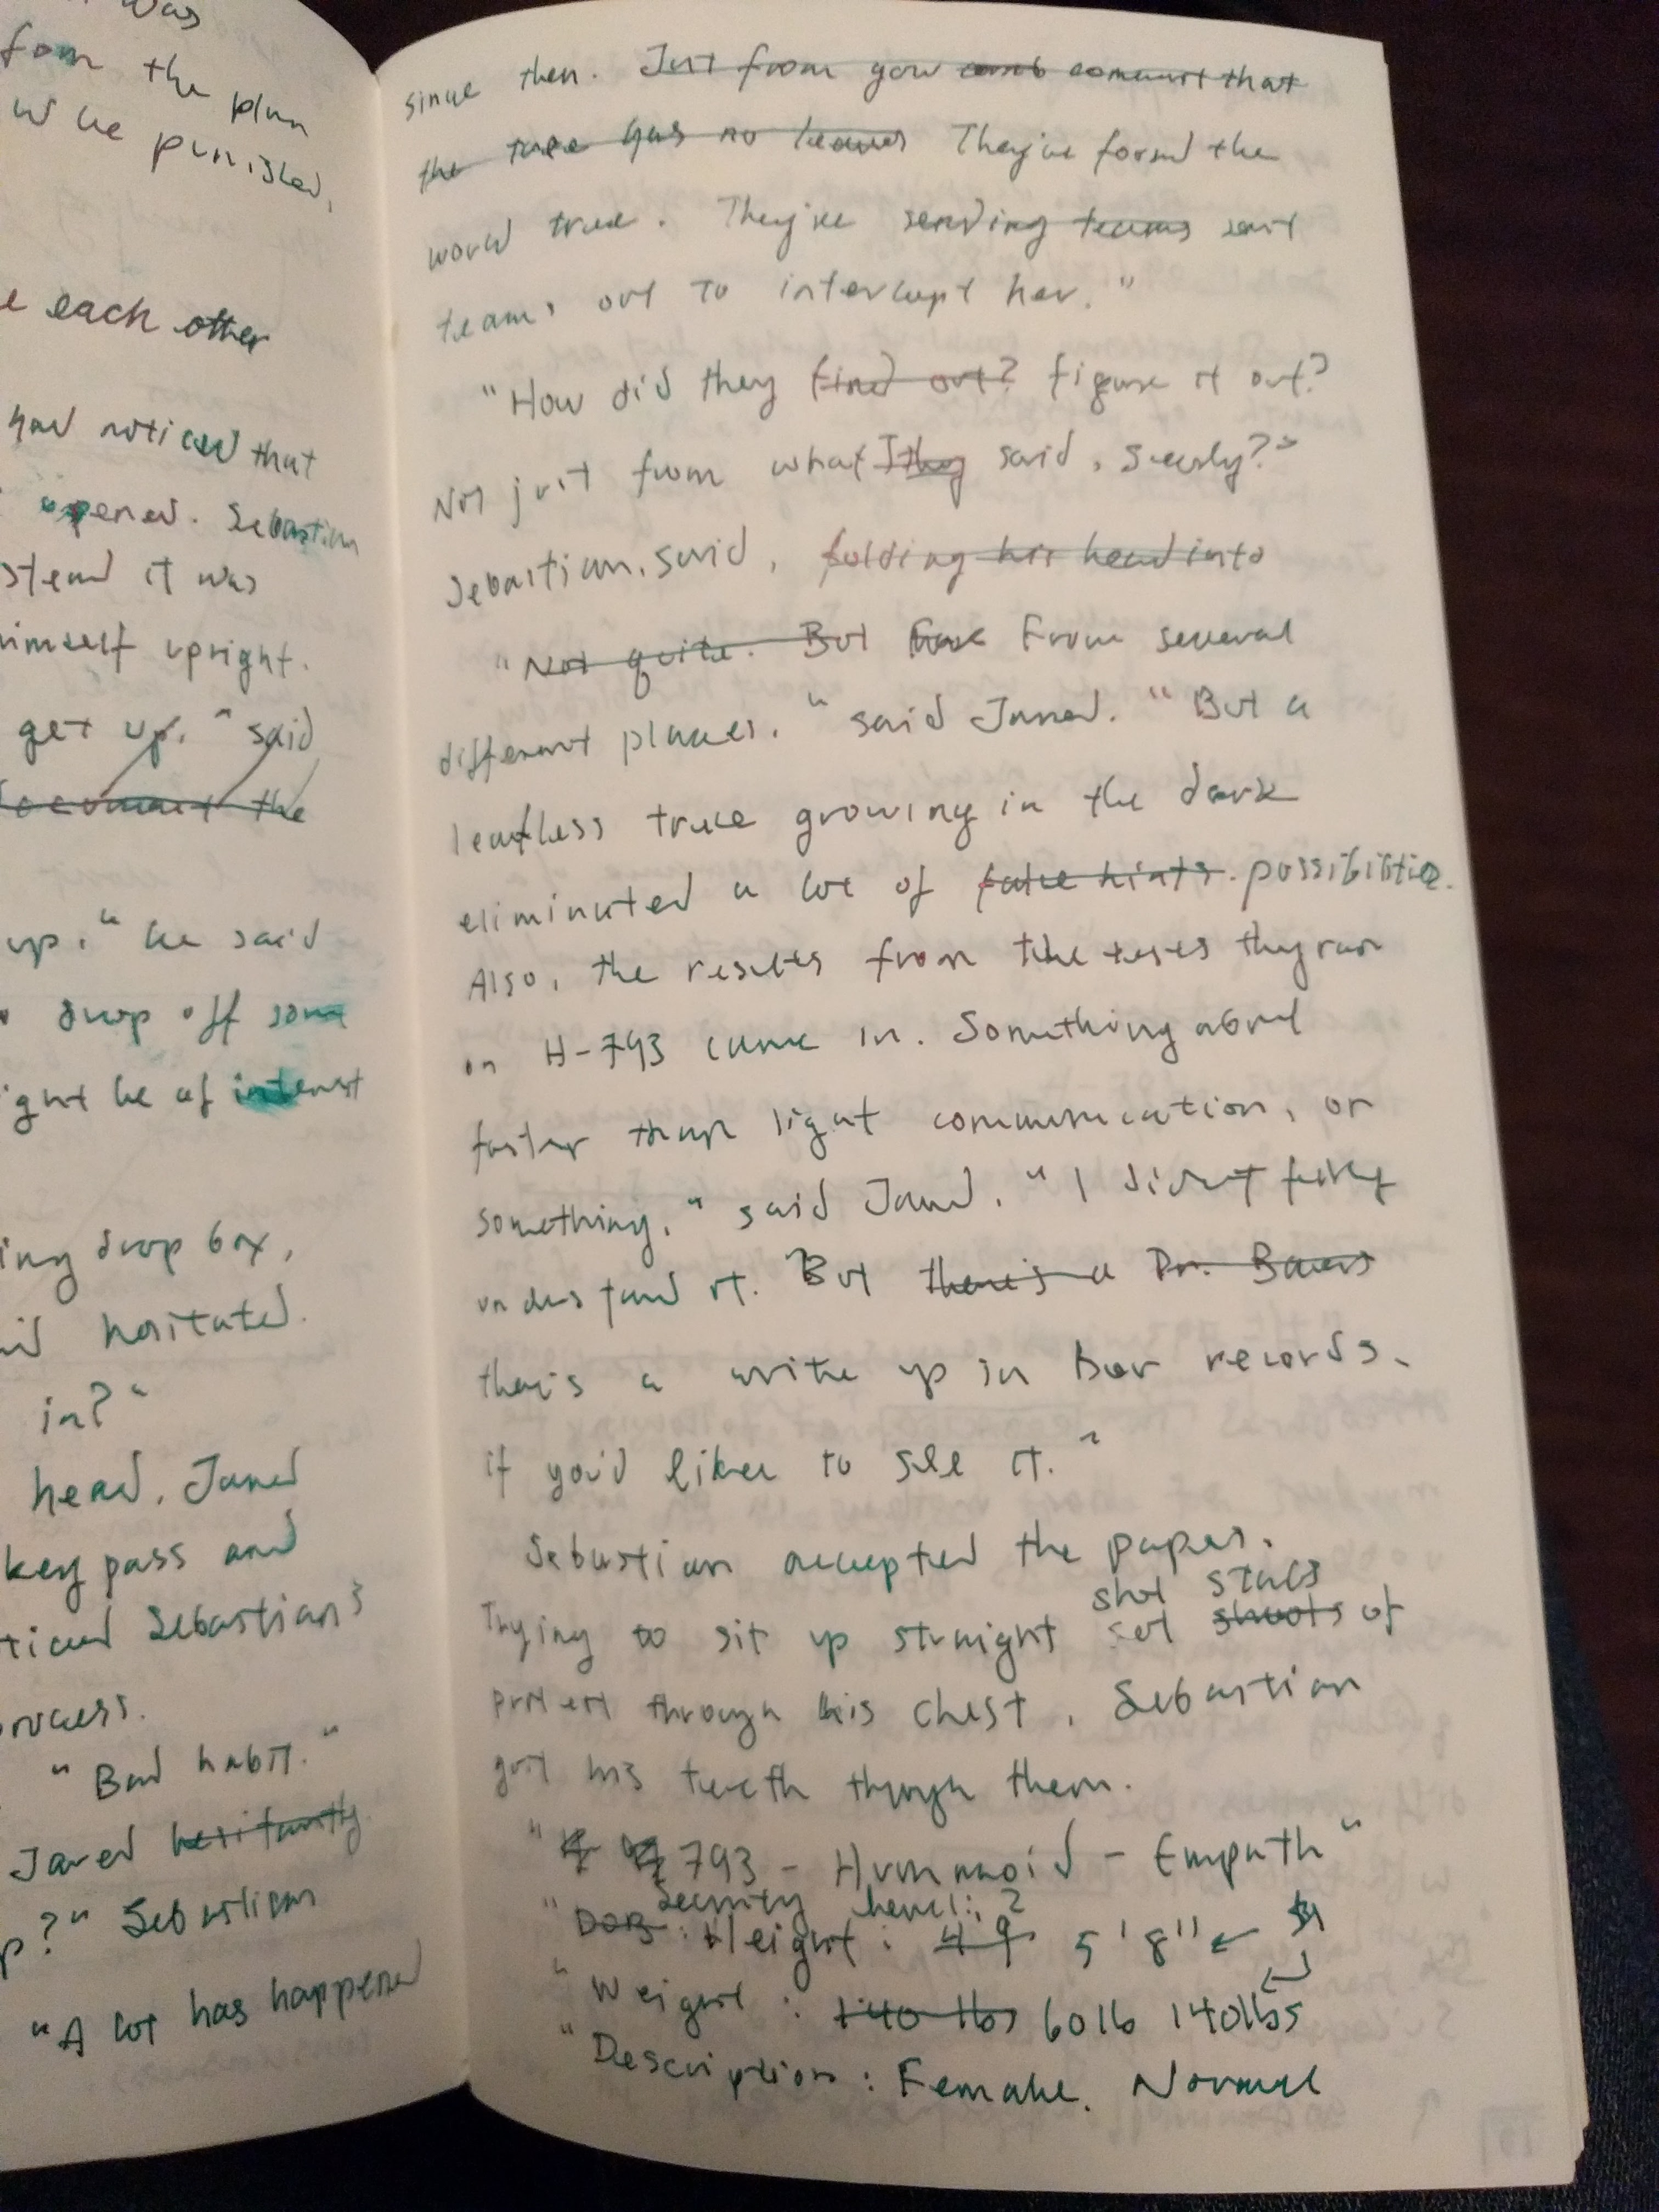 was
from the plan
be punished,
each other
had noticed that
opened. Sebastian
it was
himself upright.
get up," said
document the
up," he said
drop off some
be of interest
drop box,
hesitated.
in?"
head. Jared
key pass and
Sebastian's
"Bad habit."
Jared hesitantly
?" Sebastian
"A lot has happened
since then. Just from your comment that
the tree has no leaves They've found the
world tree. They're sending teams sent
teams out to intercept her."
"How did they find out? figure it out?
Not just from what I they said, surely?"
Sebastian said, folding his head into
"Not quite. But From several
different places," said Jared. "But a
leafless tree growing in the dark
eliminated a lot of false hints. possibilities.
Also, the results from the tests they ran
on H-793 came in. Something about
faster than light communication, or
something," said Jared, "I didn't fully
understand it. But there's a Dr. Bauers
there's a write up in her records,
if you'd like to see it."
Sebastian accepted the paper.
shot stabs
Trying to sit up straight set shoots of
protest through his chest, Sebastian
grit his teeth through them.
"793 - Humanoid - Empath"
Security Level: 2
"DOB: Height: 4'9 5'8"
"Weight: 140 lbs 60lb 140lbs
"Description: Female. Normal